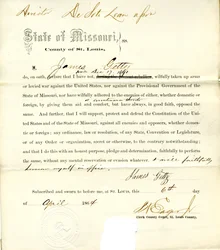 State of Missouri,
County of St. Louis,
I, James
do, on oath, declare that I have not, willfully taken up arms
or levied war against the United States, nor against the Provisional Government of the
State of Missouri, nor have willfully adhered to the enemies of either, whether domestic
or foreign, by giving them aid and comfort, but have always, in good faith, opposed the
same. And further, that I will support, protect and defend the Constitution of the United
States and of the State of Missouri, against all enemies and opposers, whether domestic
or foreign; any ordinance, law or resolution, of any State, Convention or Legislature,
or of any Order or organization, secret or otherwise, to the contrary notwithstanding;
and that I do this with an honest purpose, pledge and determination, faithfully to perform
the same, without any mental reservation or evasion whatever
James
Subscribed and sworn to before me, at St. Louis, this day
of April